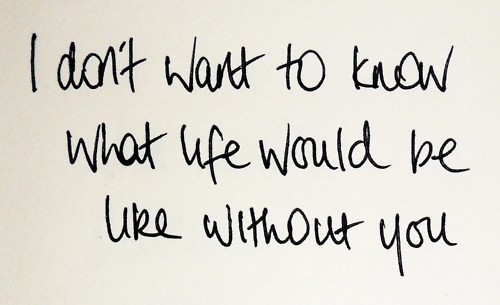 I don't want to know
what life would be
like without you